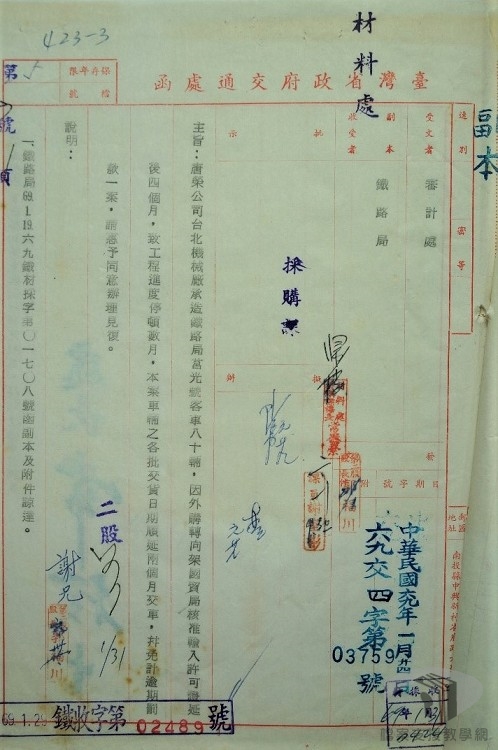 423-3
臺灣省政府交通處函
材料處
副本
速別
密等
受文者
審計處
副本收受者
鐵路局
批示
採購課
擬辦
發
日期
字號
附件
中華民國六九年一月廿四日
六九交四字第
03759
號
主旨：唐榮公司台北機械廠承造鐵路局莒光號客車八十輛，因外購轉向架國貿局核准輸入許可證延
後四個月，致工程進度停頓數月，本案車輛之各批交貨日期順延兩個月交車，并免計逾期罰
款一案，請惠予同意辦理見復。
說明：
一、鐵路局69.1.19.六九鐵材採字第〇一七〇八號函副本及附件諒達。
保存年限
檔號
第5
號
1
頁
二股
1/31
謝允
69.1.29
鐵收字第
02489
號